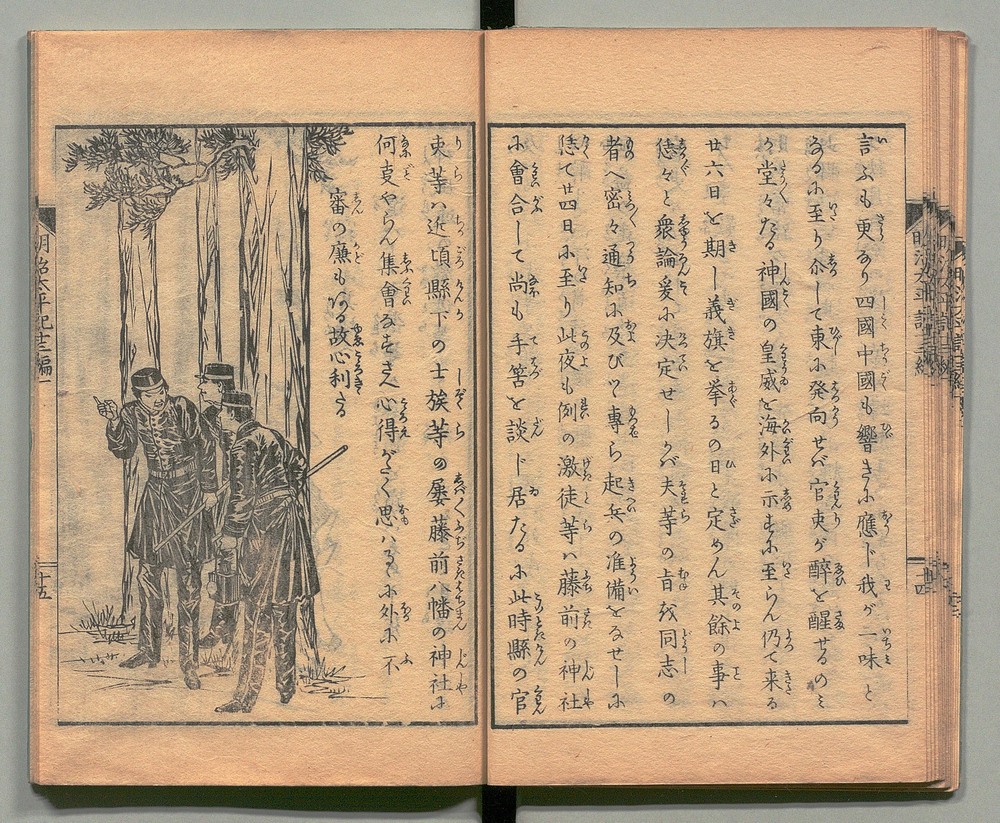 言ふも更なり四國中國も響きに應下我が一味と
なるに至り尒して東に発向せバ官吏が醉を醒せるのミ
か堂々たる神國の皇威を海外に示すに至らん仍て来る
廿六日を期し義旗を挙るの日と定めん其餘の事ハ
恁々と衆論爰に决定せしかバ夫等の旨を同志の
者へ密々通知に及びツ專ら起兵の准備をなせしに
恁て廿四日に至り此夜も例の激徒等ハ藤前の神社
に會合して尚も手筈を談じ居たるに此時縣の官
吏等ハ近頃縣下の士族等の屡藤前八幡の神社に
何事やらん集會なすさへ心得がたく思ハるゝに外に不
審の廉もある故心利たる
明治太平記十三編一
十五